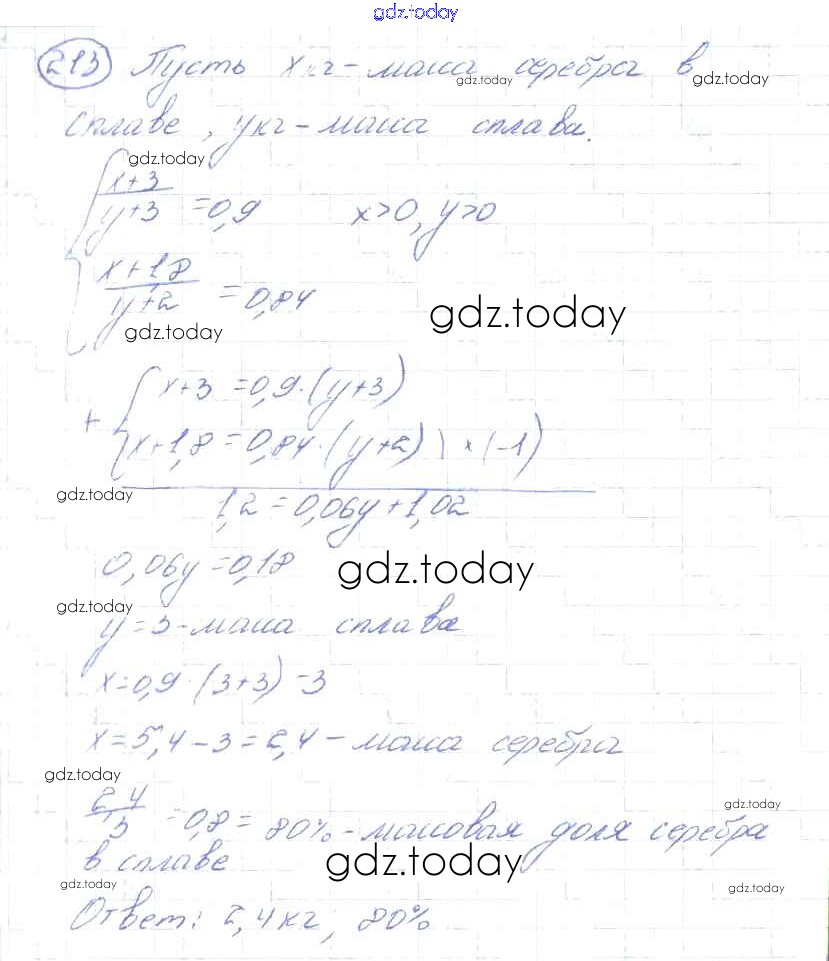 gdz.today
213 Пусть х кг - масса серебра в
gdz.today gdz.today
сплаве, y кг - масса сплава.
gdz.today
{ x+3 / y+3 = 0,9 x>0, y>0
x+1,8 / y+2 = 0,84
gdz.today
gdz.today
+ { x+3 = 0,9·(y+3)
x+1,8 = 0,84·(y+2) | × (-1)
gdz.today
1,2 = 0,06y + 1,02
0,06y = 0,18
gdz.today
gdz.today
y = 3 - масса сплава
x = 0,9·(3+3) - 3
x = 5,4 - 3 = 2,4 - масса серебра
gdz.today
2,4 / 3 = 0,8 = 80% - массовая доля серебра
gdz.today
в сплаве
gdz.today
gdz.today gdz.today
Ответ: 2,4 кг, 80%